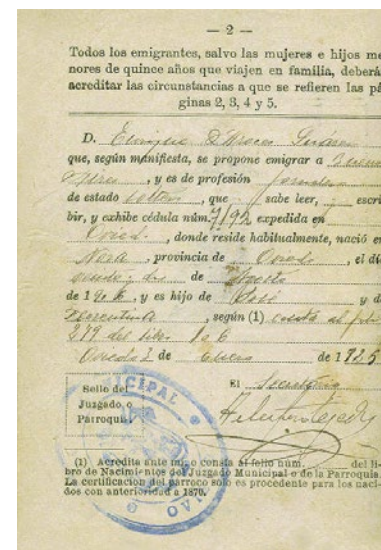 — 2 —
Todos los emigrantes, salvo las mujeres e hijos me
nores de quince años que viajen en familia, deberá
acreditar las circunstancias a que se refieren las pá
ginas 2, 3, 4 y 5.
D. Enrique
que, según manifiesta, se propone emigrar a Buenos
Aires, y es de profesión jornalero
de estado soltero, que sabe leer, escri
bir, y exhibe cédula núm. 7192 expedida en
Oviedo, donde reside habitualmente, nació en
, provincia de Oviedo, el día
de Agosto
de 1906, y es hijo de José y d
Florentina, según (1) consta al folio
279 del libro 106
Oviedo 2 de Enero de 1925
El Secretario
Sello del
Juzgado o
Parroquia
CIPAL
(1) Acredita ante mi o consta al folio núm. del li-
bro de Nacimientos del Juzgado Municipal o de la Parroquia.
La certificación del párroco sólo es procedente para los naci-
dos con anterioridad a 1870.